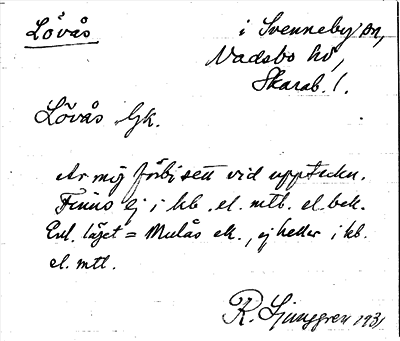 Lövås
i Svenneby sn,
Vadsbo hd,
Skarab. l.
Lövås Gk.
Av mig förbisett vid uppteckn.
Finns ej i kb. el. mtb. el. bek.
Enl. läget = Mulås ek., ej heller i kb.
el. mtl.
R. Ljunggren 1931